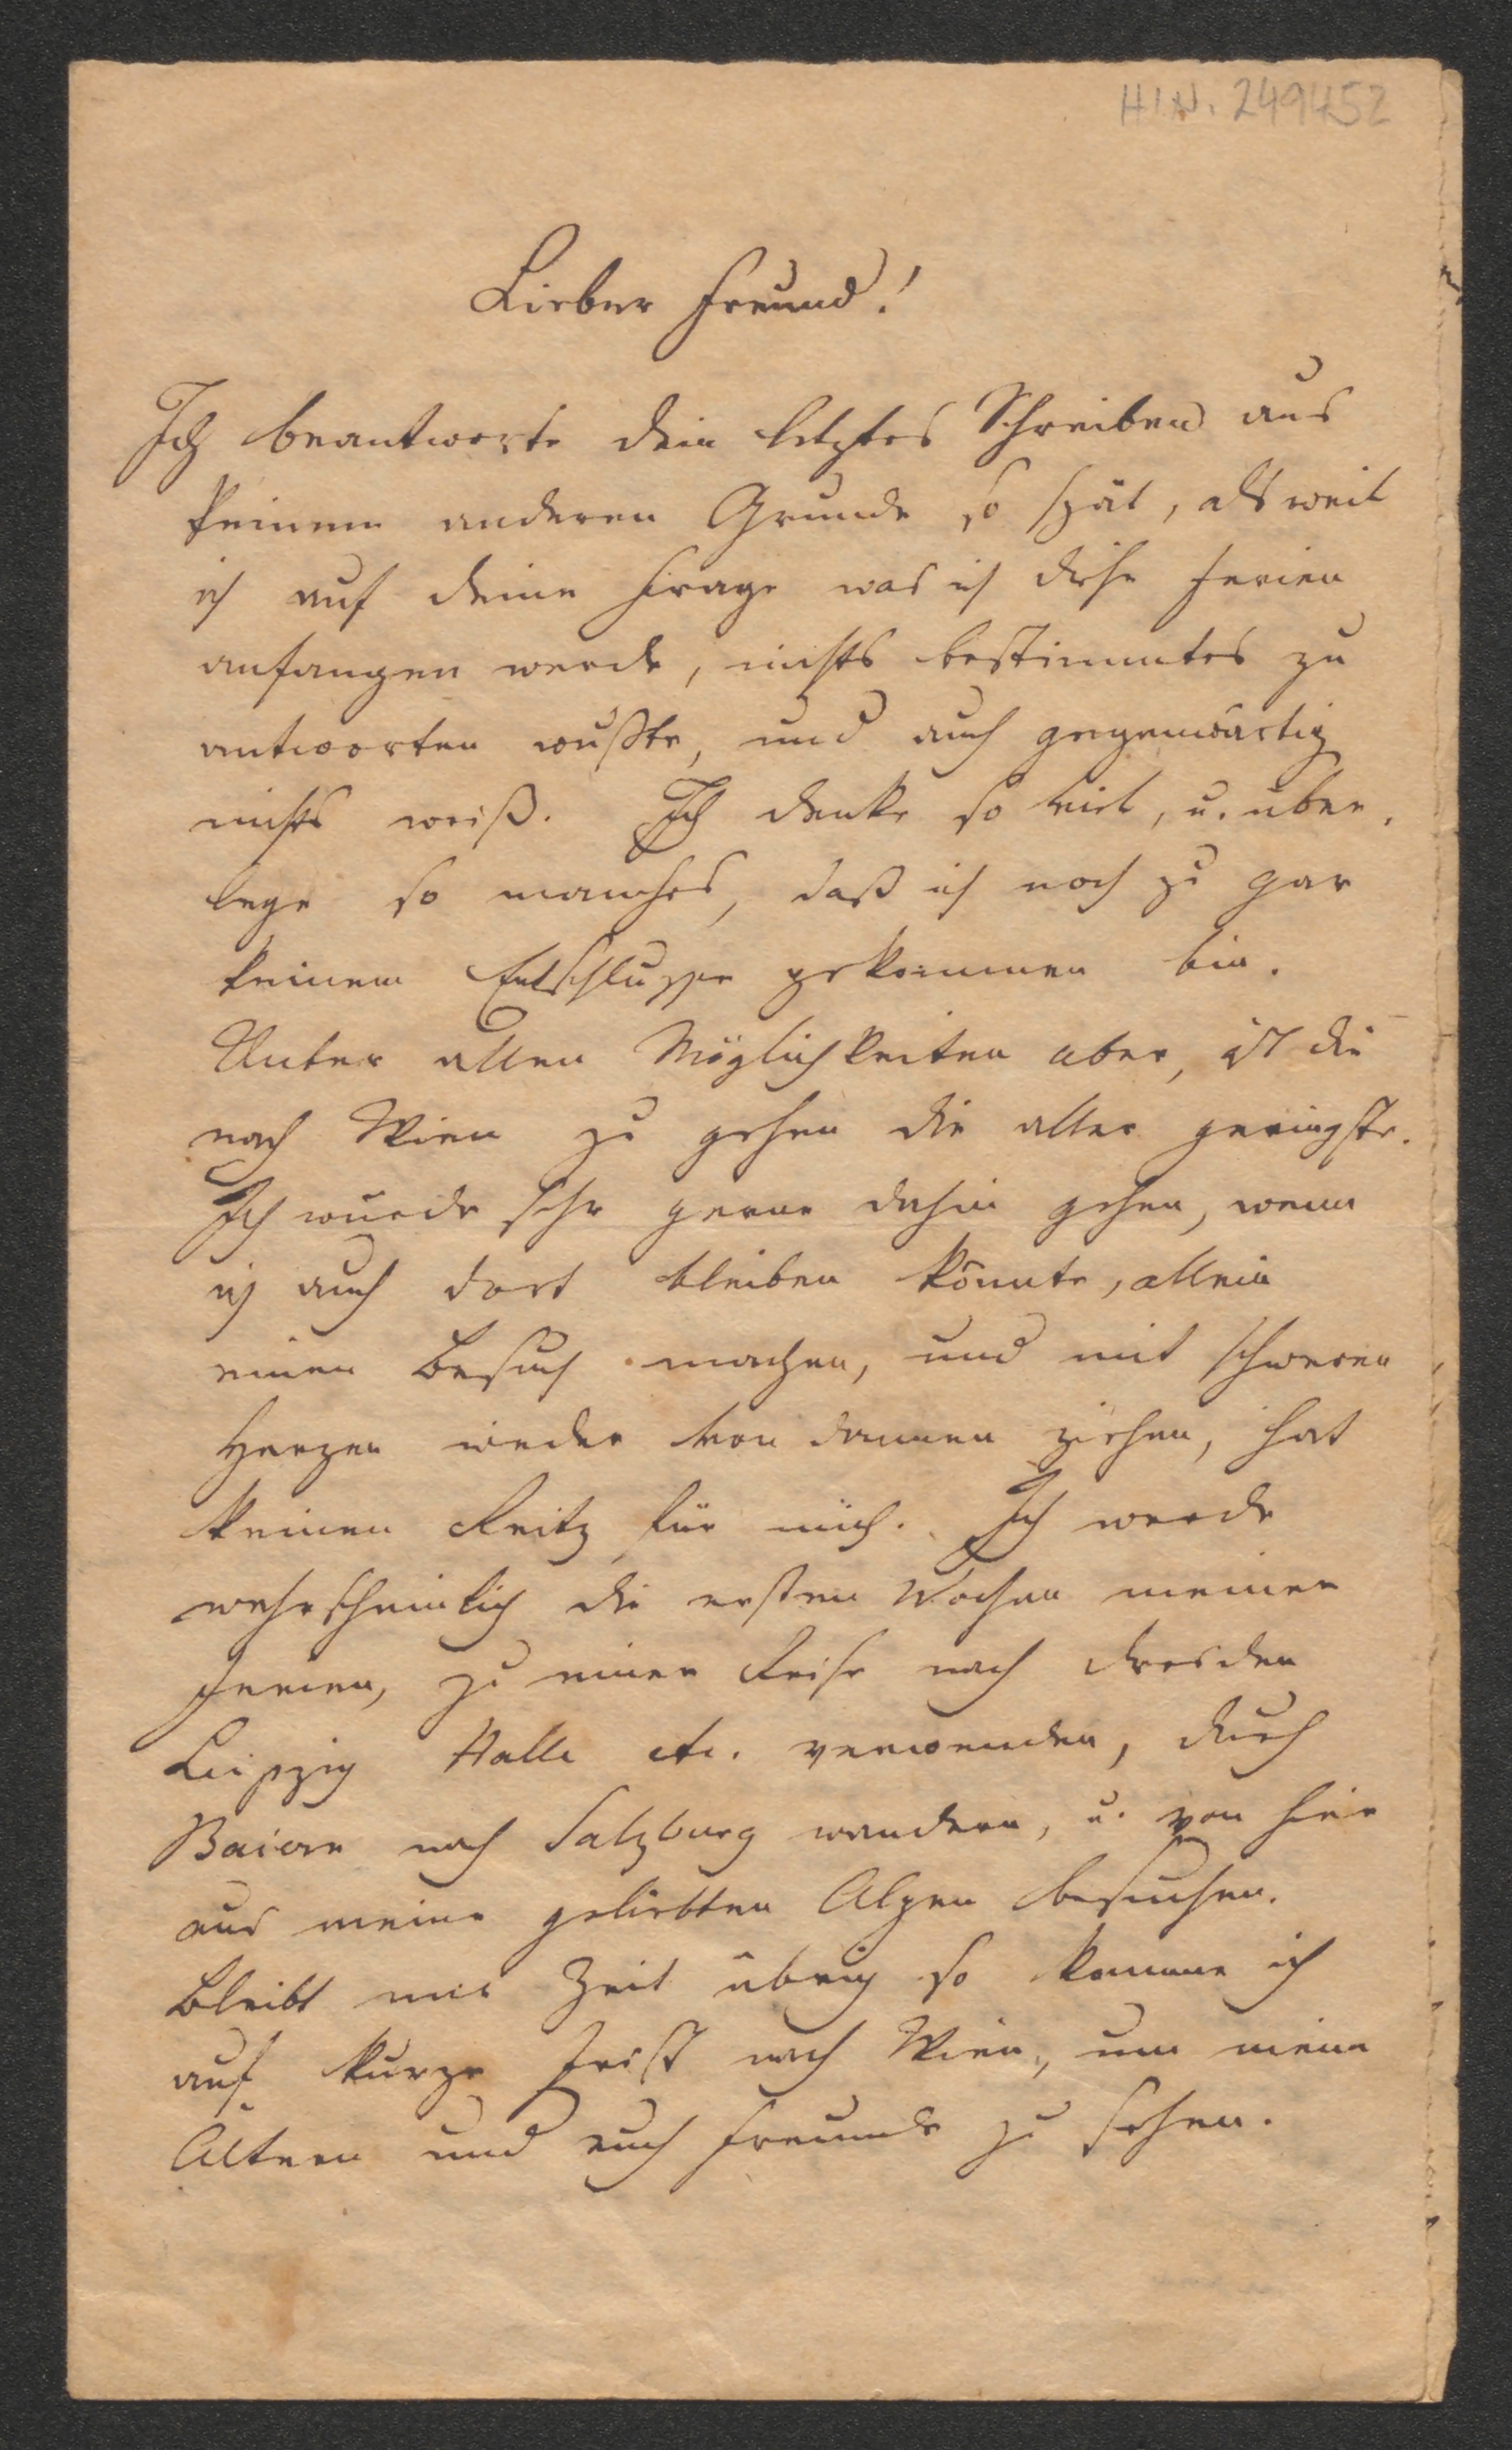 H.I.N. 249452
Lieber Freund!
Ich beantworte dein letztes Schreiben aus
keinem anderen Grunde so spät, als weil
ich auf deine Frage was ich diese Ferien
anfangen werde, nichts bestimmtes zu
antworten wußte, und auch gegenwärtig
nichts weiß. Ich denke so viel, u. über,
lege so manches, daß ich noch zu gar
keinem Entschlusse gekommen bin.
Unter allen Möglichkeiten aber, ist die
nach Wien zu gehen die aller geringste.
Ich würde sehr gerne dahin gehen, wenn
ich auch dort bleiben könnte, allein
einen Besuch machen, und mit schweren
Herzen wieder von dannen ziehen, hat
keinen Reitz für mich. Ich werde
wahrscheinlich die ersten Wochen meiner
Ferien, zu einer Reise nach Dresden
Leipzig Halle etc. verwenden, durch
Baiern nach Salzburg wandern, u. von hier
aus meine geliebten Alpen besuchen.
Bleibt mir Zeit übrig so komme ich
auf kurze Frist nach Wien, um meine
Ältern und euch Freunde zu sehen.